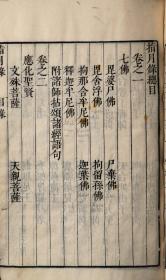 指月錄總目
卷之一
七佛
毘婆尸佛 尸棄佛
毘舍浮佛 拘留孫佛
拘那含牟尼佛 迦葉佛
釋迦牟尼佛
附諸師拈頌諸經語句
卷之二
應化聖賢
文殊菩薩 天親菩薩
指月錄
目錄